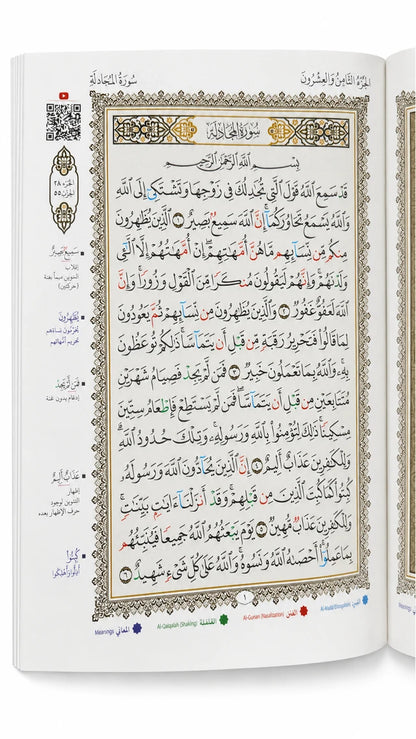 سُورَةُ المُجَادلَةِ
الجُزْءُ الثَّامِنُ وَالعِشْرُونَ
الجزء ٢٨
الحزب ٥٥
سُورَةُ المُجَادلَةِ
بِسْمِ ٱللَّهِ ٱلرَّحْمَٰنِ ٱلرَّحِيمِ
قَدْ سَمِعَ ٱللَّهُ قَوْلَ ٱلَّتِى تُجَٰدِلُكَ فِى زَوْجِهَا وَتَشْتَكِىٓ إِلَى ٱللَّهِ
وَٱللَّهُ يَسْمَعُ تَحَاوُرَكُمَآ إِنَّ ٱللَّهَ سَمِيعٌۢ بَصِيرٌ ١ ٱلَّذِينَ يُظَٰهِرُونَ
مِنكُم مِّن نِّسَآئِهِم مَّا هُنَّ أُمَّهَٰتِهِمْ إِنْ أُمَّهَٰتُهُمْ إِلَّا ٱلَّٰٓـِٔى
وَلَدْنَهُمْ وَإِنَّهُمْ لَيَقُولُونَ مُنكَرًا مِّنَ ٱلْقَوْلِ وَزُورًا وَإِنَّ
ٱللَّهَ لَعَفُوٌّ غَفُورٌ ٢ وَٱلَّذِينَ يُظَٰهِرُونَ مِن نِّسَآئِهِمْ ثُمَّ يَعُودُونَ
لِمَا قَالُوا۟ فَتَحْرِيرُ رَقَبَةٍ مِّن قَبْلِ أَن يَتَمَآسَّا ذَٰلِكُمْ تُوعَظُونَ
بِهِۦ وَٱللَّهُ بِمَا تَعْمَلُونَ خَبِيرٌ ٣ فَمَن لَّمْ يَجِدْ فَصِيَامُ شَهْرَيْنِ
مُتَتَابِعَيْنِ مِن قَبْلِ أَن يَتَمَآسَّا فَمَن لَّمْ يَسْتَطِعْ فَإِطْعَامُ سِتِّينَ
مِسْكِينًا ذَٰلِكَ لِتُؤْمِنُوا۟ بِٱللَّهِ وَرَسُولِهِۦ وَتِلْكَ حُدُودُ ٱللَّهِ
وَلِلْكَٰفِرِينَ عَذَابٌ أَلِيمٌ ٤ إِنَّ ٱلَّذِينَ يُحَآدُّونَ ٱللَّهَ وَرَسُولَهُۥ
كُبِتُوا۟ كَمَا كُبِتَ ٱلَّذِينَ مِن قَبْلِهِمْ وَقَدْ أَنزَلْنَآ ءَايَٰتٍۭ بَيِّنَٰتٍ
وَلِلْكَٰفِرِينَ عَذَابٌ مُّهِينٌ ٥ يَوْمَ يَبْعَثُهُمُ ٱللَّهُ جَمِيعًا فَيُنَبِّئُهُم
بِمَا عَمِلُوٓا۟ أَحْصَىٰهُ ٱللَّهُ وَنَسُوهُ وَٱللَّهُ عَلَىٰ كُلِّ شَىْءٍ شَهِيدٌ ٦
سَمِيعٌۢ بَصِيرٌ
إقلاب
التنوين ميماً بغنة
(حركتين)
يُظَٰهِرُونَ
يُحَرِّمُونَ نساءهم
تحريم أمّهاتهم
فَمَن لَّمْ يَجِدْ
إدغام بدون غنة
عَذَابٌ أَلِيمٌ
إظهار
التنوين لوجود
حرف الإظهار بعده
كُبِتُوا۟
أُذِلُّوا وأُهْلِكُوا
١
Meanings المعاني
Al-Qalqalah (Shaking) القَلقَلة
Al-Gunan (Nasalization) الغُنَن
Al-Madd (Elongation)
Meanings